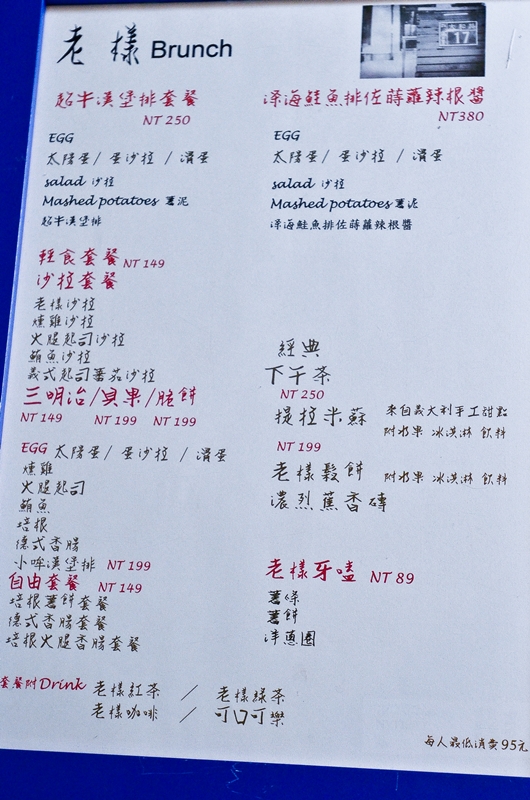 老樣 Brunch
17
超牛漢堡排套餐
NT 250
EGG
太陽蛋/ 蛋沙拉 / 滑蛋
salad 沙拉
Mashed potatoes 薯泥
超牛漢堡排
輕食套餐 NT 149
沙拉套餐
老樣沙拉
燻雞沙拉
火腿起司沙拉
鮪魚沙拉
義式起司蕃茄沙拉
三明治/貝果/脆餅
NT 149 NT 199 NT 199
EGG 太陽蛋/ 蛋沙拉 / 滑蛋
燻雞
火腿起司
鮪魚
培根
德式香腸
小哞漢堡排 NT 199
自由套餐 NT 149
培根薯餅套餐
德式香腸套餐
培根火腿香腸套餐
深海鮭魚排佐蒔蘿辣根醬
NT380
EGG
太陽蛋/ 蛋沙拉 / 滑蛋
salad 沙拉
Mashed potatoes 薯泥
深海鮭魚排佐蒔蘿辣根醬
經典
下午茶
NT 250
提拉米蘇 來自義大利手工甜點
附水果 冰淇淋 飲料
NT 199
老樣鬆餅 附水果 冰淇淋 飲料
濃烈蕉香磚
老樣牙嗑 NT 89
薯條
薯餅
洋蔥圈
套餐附Drink 老樣紅茶 / 老樣綠茶
老樣咖啡 / 可口可樂
每人最低消費95元